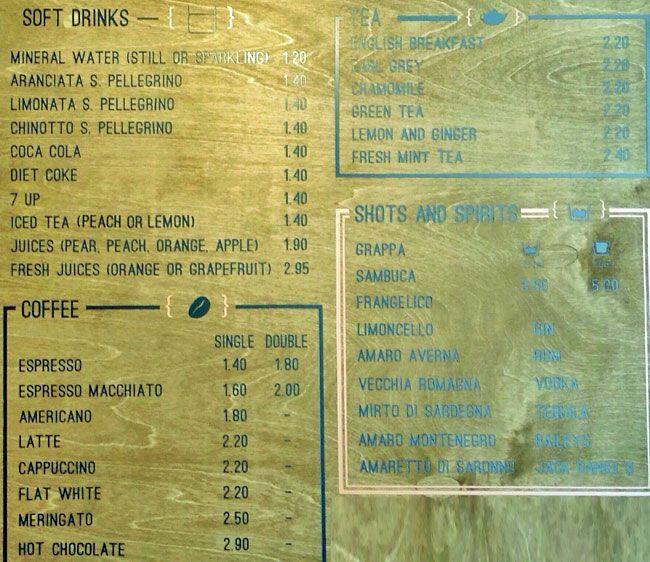 SOFT DRINKS
MINERAL WATER (STILL OR SPARKLING) 1.20
ARANCIATA S. PELLEGRINO 1.40
LIMONATA S. PELLEGRINO 1.40
CHINOTTO S. PELLEGRINO 1.40
COCA COLA 1.40
DIET COKE 1.40
7 UP 1.40
ICED TEA (PEACH OR LEMON) 1.40
JUICES (PEAR, PEACH, ORANGE, APPLE) 1.90
FRESH JUICES (ORANGE OR GRAPEFRUIT) 2.95
COFFEE
SINGLE DOUBLE
ESPRESSO 1.40 1.80
ESPRESSO MACCHIATO 1.60 2.00
AMERICANO 1.80 -
LATTE 2.20 -
CAPPUCCINO 2.20 -
FLAT WHITE 2.20 -
MERINGATO 2.50 -
HOT CHOCOLATE 2.90 -
TEA
ENGLISH BREAKFAST 2.20
EARL GREY 2.20
CHAMOMILE 2.20
GREEN TEA 2.20
LEMON AND GINGER 2.20
FRESH MINT TEA 2.40
SHOTS AND SPIRITS
GRAPPA
SAMBUCA 5.00
FRANGELICO
LIMONCELLO GIN
AMARO AVERNA RUM
VECCHIA ROMAGNA VODKA
MIRTO DI SARDEGNA TEQUILA
AMARO MONTENEGRO BAILEYS
AMARETTO DI SARONNO JACK DANIEL'S